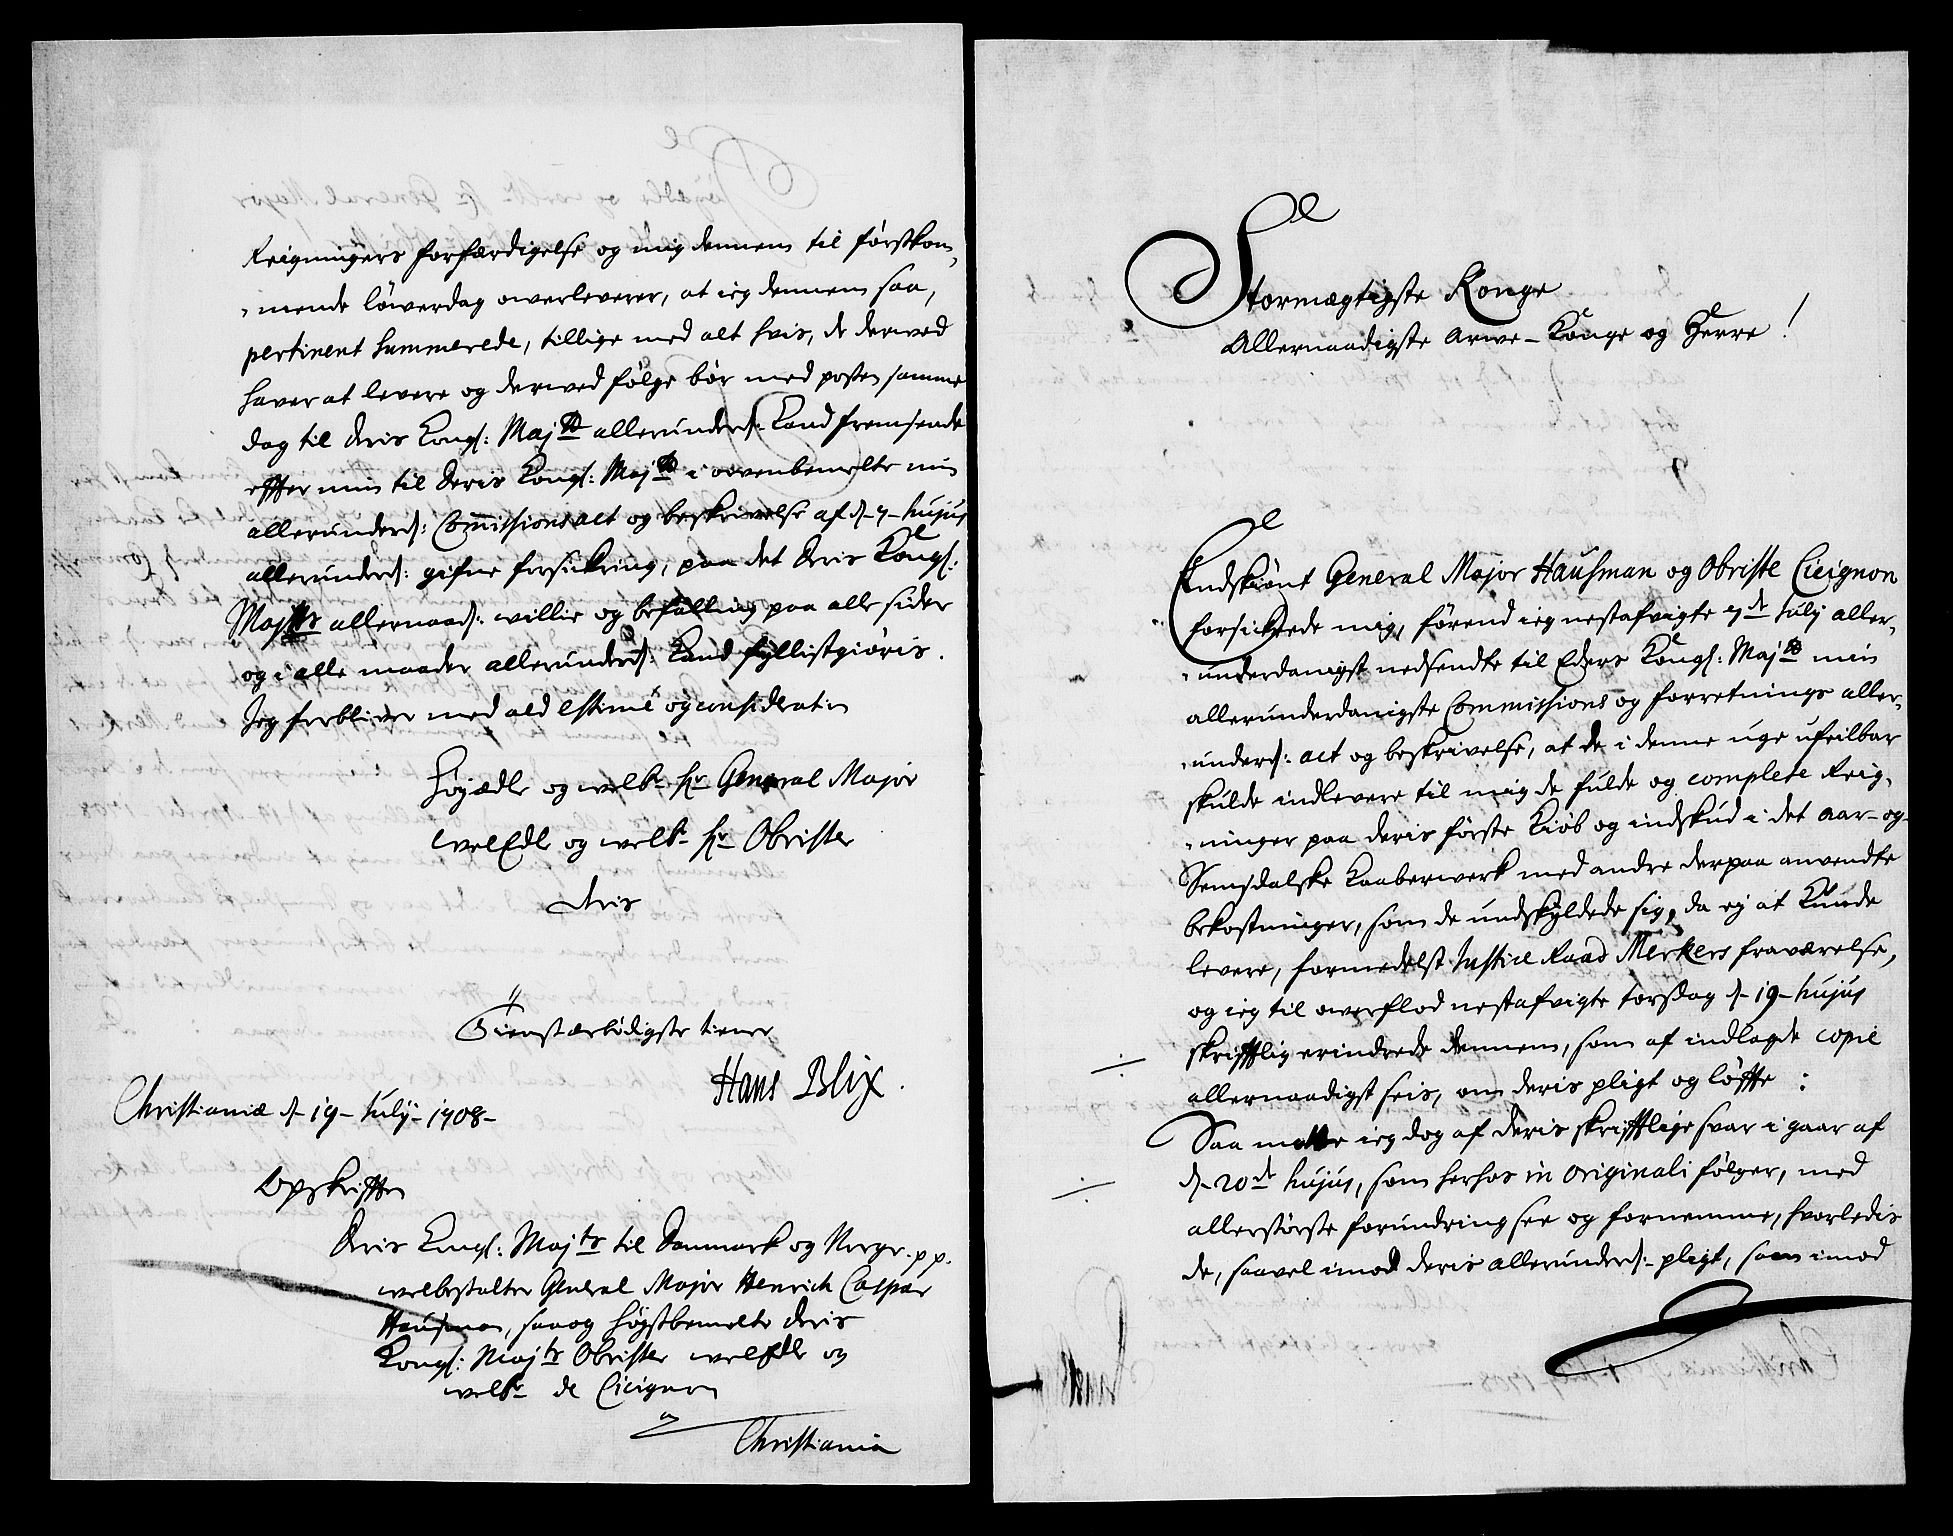 Reigningers forfærdigelse og mig dennem til førstkom,
,mende löwerdag owerleverer, at ieg dennem saa,
pertinent summerede, tillige med alt hvis, de derved
haver at levere og derved følge bör med posten samme
dag til Deris Kongl: Majtt allerunderd: Kand fremsende
effter min til Deris Kongl: Majtt i ovenbemelte min
allerunderd: Commissions act og beskrivelse af d. 7 hujus
allerunderd: gifne forsickring, paa det Deris Kongl:
Majtts allernaad: willie og befalling paa alle sider
og i alle maader allerunderd: Kand fyllistgiöris.
Jeg forbliver med ald estime og consideration
Höyædle og welb. Hr General Major
WelEdle og welb. Hr Obrister
Deris
Tienstærbödigste tiener
Hans Blix.
Christianiæ d. 19 July 1708
Opskrifften
Deris Kongl: Majts til Danmark og Norge p. p.
welbestalter General Major Henrich Caspar
Hausman, saa og höystbemelte Deris
Kongl: Majts Obrister welEdle og
welb. de Cicignon
Christiania
Stormægtigste Konge
Allernaadigste Arwe-Konge og Herre!
Endskiönt General Major Hausman og Obriste Cicignon
forsickrede mig, förend ieg nestafvigte 7de July aller,
,underdanigst nedsendte til Eders Kongl: Majtt min
allerunderdanigste Commissions og forretnings aller,
,underd: act og beskrivelse, at de i denne uge ufeilbar
skulde indlevere til mig de fulde og complete Reig,
,ninger paa deris förste Kiöb og indskud i det Aar- og
Semsdalske Kaaberwerk med andre derpaa anvendte
bekostninger, som de undskyldede sig, da ey at Kunde
levere, formedelst Justice Raad Merkers fraværelse,
og ieg til owerflod nestafvigte torsdag d. 19 hujus
skrifftlig erindrede dennem, som af indlagde copie
allernaadigst seis, om deris pligt og löffte :
Saa matte ieg dog af deris skrifftlige svar i gaar af
d. 20de hujus, som herhos in originali fölger, med
allerstörste forundring see og fornemme, hvorledis
de, saavel imod deris allerunderd: pligt, som imod